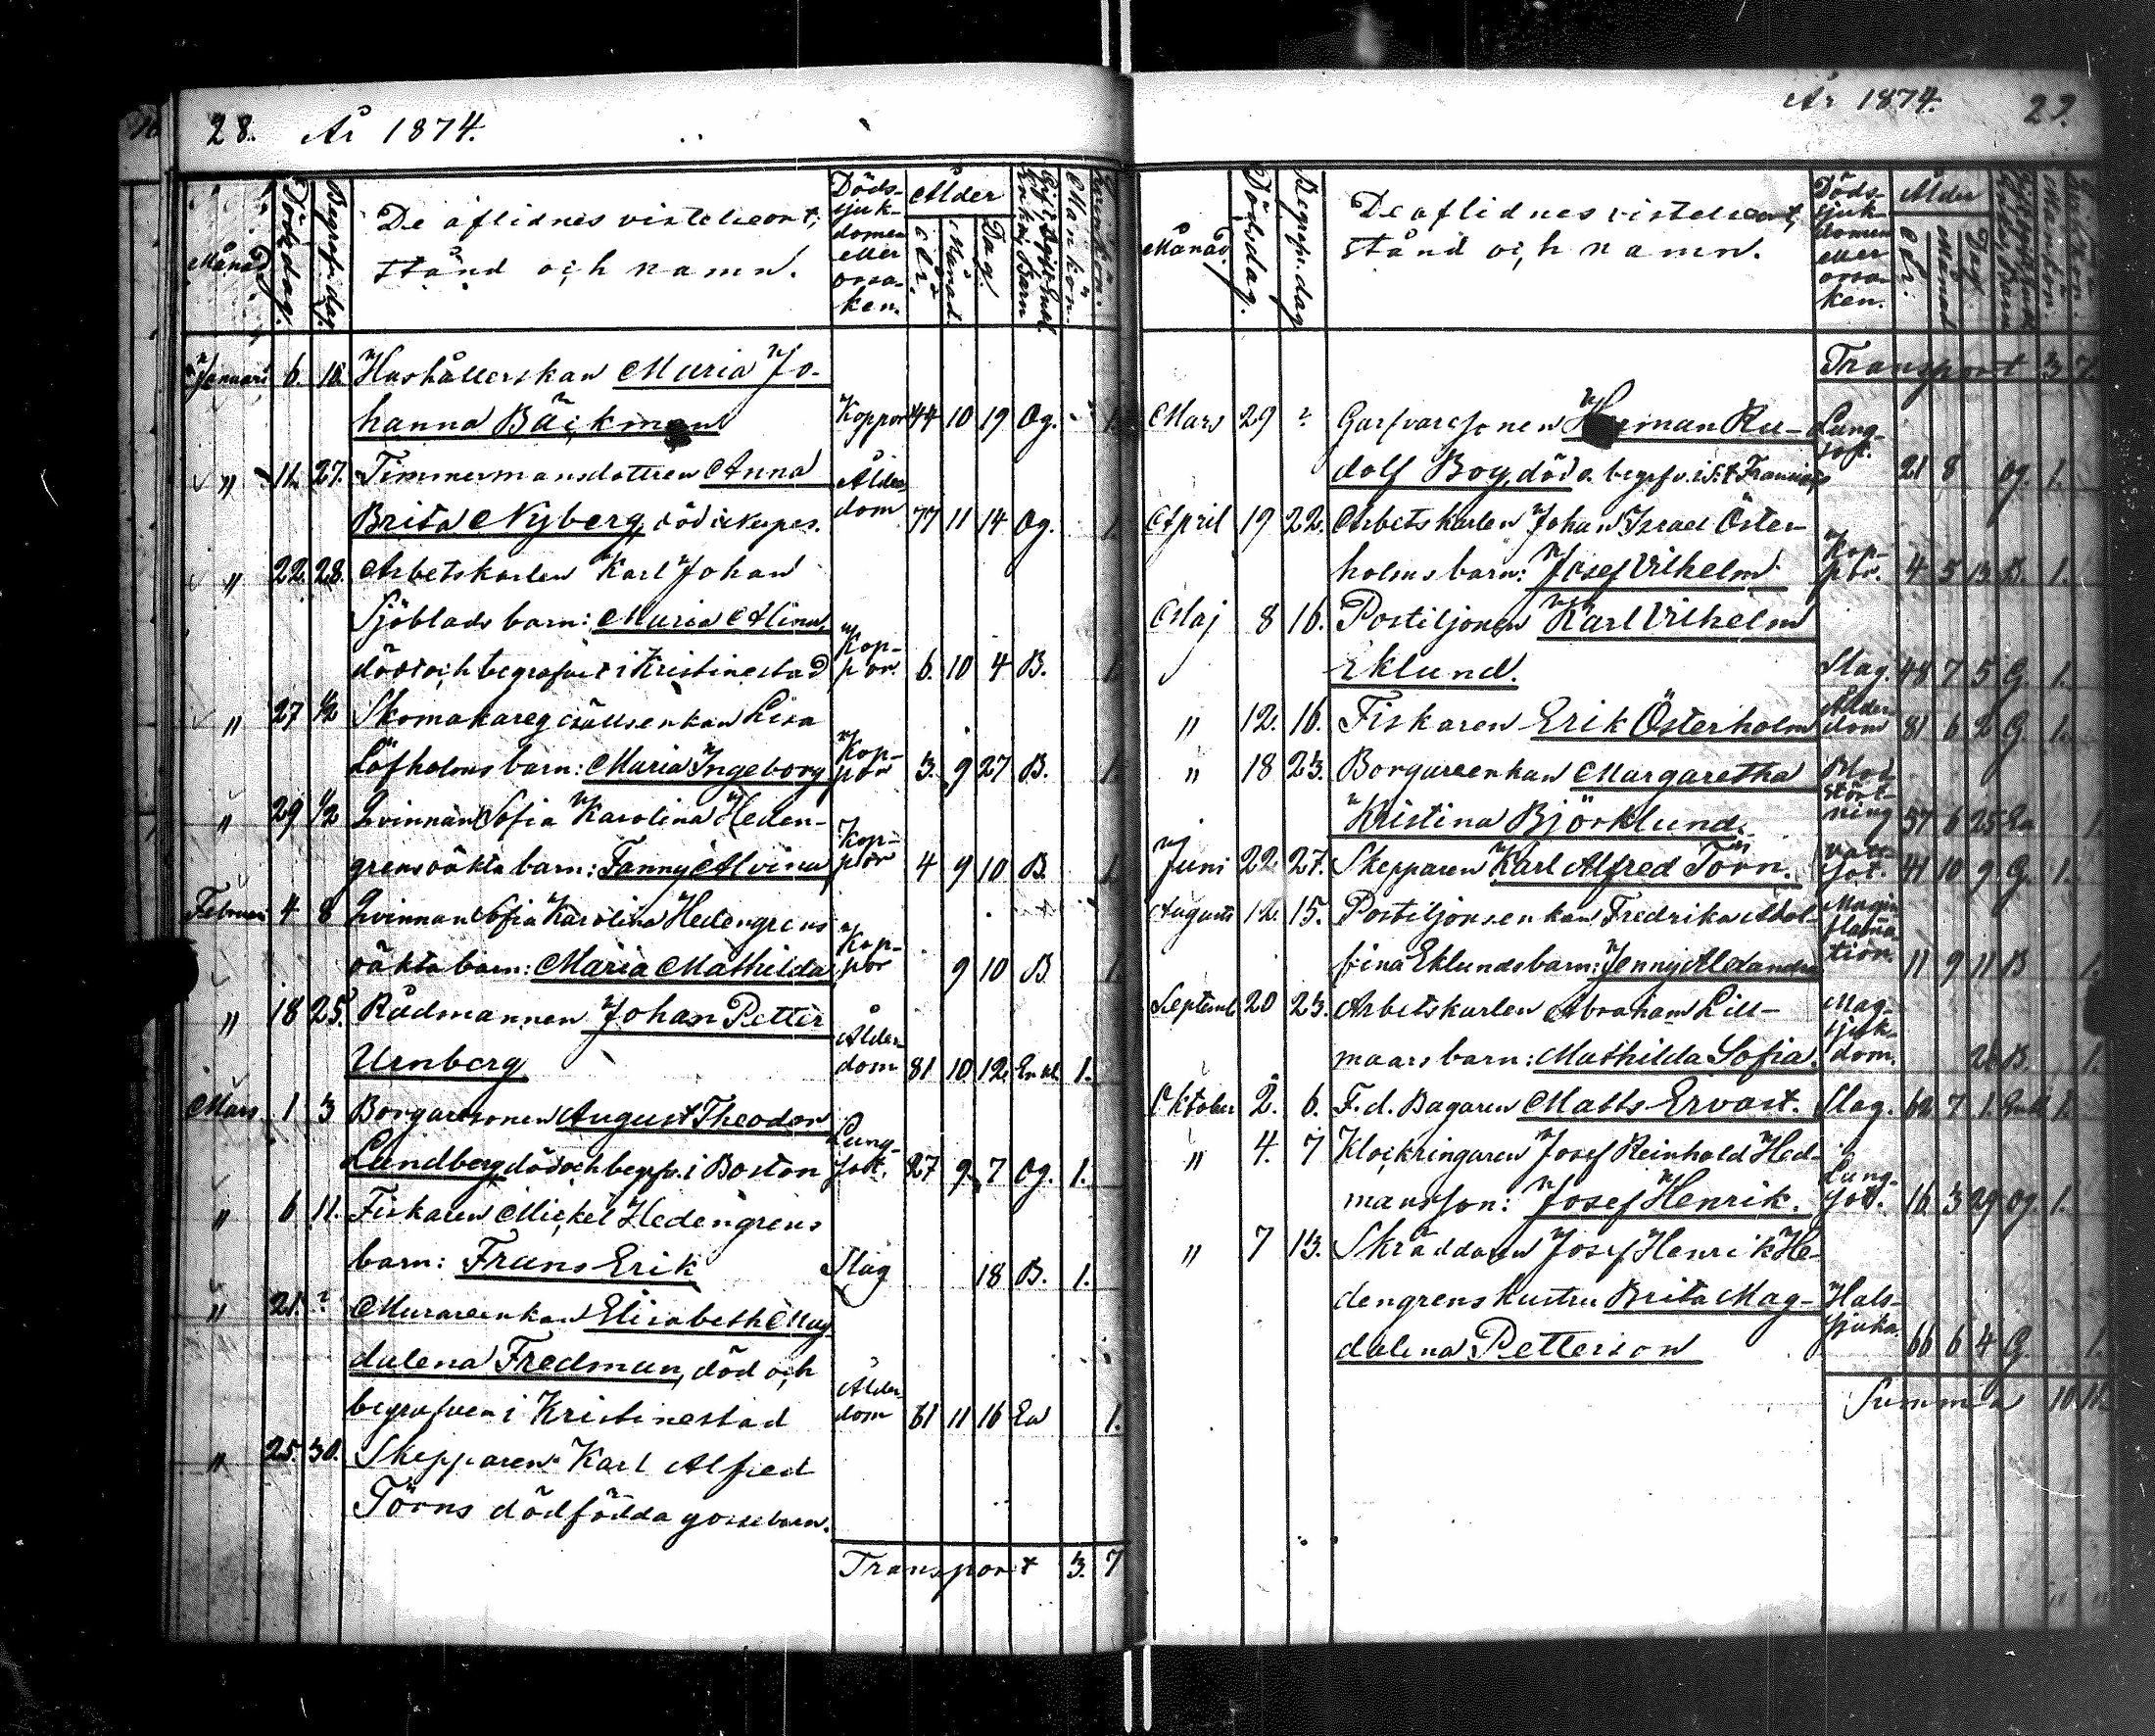 28. År 1874.
Månad
Dödsdag.
Begrafn.dag.
De aflidnes vistelseort,
stånd och namn.
Döds-
sjuk-
domen
eller
orsa-
ken.
Ålder
År.
Månad.
Dag.
Mankön.
Qvinkön.
Januari 6. 16. Hushållerskan Maria Jo-
hanna Bäckman Koppor 44 10 19 Og. 1.
" 11. 27. Timmermansdottren Anna Ålder-
Brita Nyberg, död i Kupes. dom 77 11 14 Og. 1.
" 22. 28. Arbetskarlen Karl Johan
Sjöblads barn: Maria Alina, Kop-
död och begrafvet i Kristinestad por. 6. 10 4 B. 1.
" 27 1/2 Skomakaregesällsenkan Lisa
Löfholms barn: Maria Ingeborg Kop-
por 3. 9 27 B. 1.
" 29 1/2 Qvinnan Sofia Karolina Heden-
grens oäkta barn: Fanny Alvina Kop-
por 4 9 10 B. 1.
Februari 4 8 Qvinnan Sofia Karolina Hedengrens
oäkta barn: Maria Mathilda Kop-
por 9 10 B 1.
" 18 25. Rådmannen Johan Petter
Urnberg Ålder-
dom 81 10 12. Enkl. 1.
Mars 1 3 Borgaresonen August Theodor
Lundberg död och begrfv. i Boston Lung-
sot. 27 9. 7 Og. 1.
" 6 11. Fiskaren Mickel Hedengrens
barn: Frans Erik Slag 18 B. 1.
" 21. ? Murareenkan Elisabeth Mag-
dalena Fredman, död och
begrafven i Kristinestad Ålder-
dom 61 11 16 En 1.
" 25. 30. Skepparen Karl Alfred
Törns dödfödda gossebarn.
Transport 3. 7
År 1874. 29.
Månad.
Dödsdag.
Begrafn.dag
De aflidnes vistelseort,
stånd och namn.
Döds-
sjuk-
domen
eller
orsa-
ken.
Ålder
År.
Månad
Dag.
Transport 3 7
Mars 29 ? Garfvaresonen Herman Ru- Lung-
sot.
dolf Boy, död o. begrfv. i S:t Francisco 21 8 og. 1.
April 19 22. Arbetskarlen Johan Israel Öster-
holms barn: Josef Vilhelm Kop-
por. 4 5 13 B. 1.
Maj 8 16. Postiljonen Karl Vilhelm
Eklund. Slag. 48 7 5 G 1.
" 12. 16. Fiskaren Erik Österholm Ålder-
dom 81 6 2 G 1.
" 18 23. Borgareenkan Margaretha Blod-
Kristina Björklund. stört-
ning 57 6 25 En 1.
Juni 22 27. Skepparen Karl Alfred Törn. sot. 41 10 9 G. 1.
Augusti 12. 15. Postiljonsenkan Fredrika Adol-
fina Eklunds barn: Jenny Alexandra Magin-
flama-
tion. 11 9 11 B 1.
Septemb. 20 23. Arbetskarlen Abraham Lill- Mag-
maars barn: Mathilda Sofia. sjuk-
dom. 26 B. 1.
Oktober 2. 6. F.d. Bagaren Matts Ervast. Slag. 62 7 1. Enkl 1.
" 4. 7 Klockringaren Josef Reinhold Hed-
mans son: Josef Henrik. Lung-
sot. 16 3 29 Og. 1.
" 7 13. Skräddaren Josef Henrik He-
dengrens hustru Brita Mag- Hals-
dalena Petterson sjuka. 66 6 4 G. 1.
Summa 10 11.